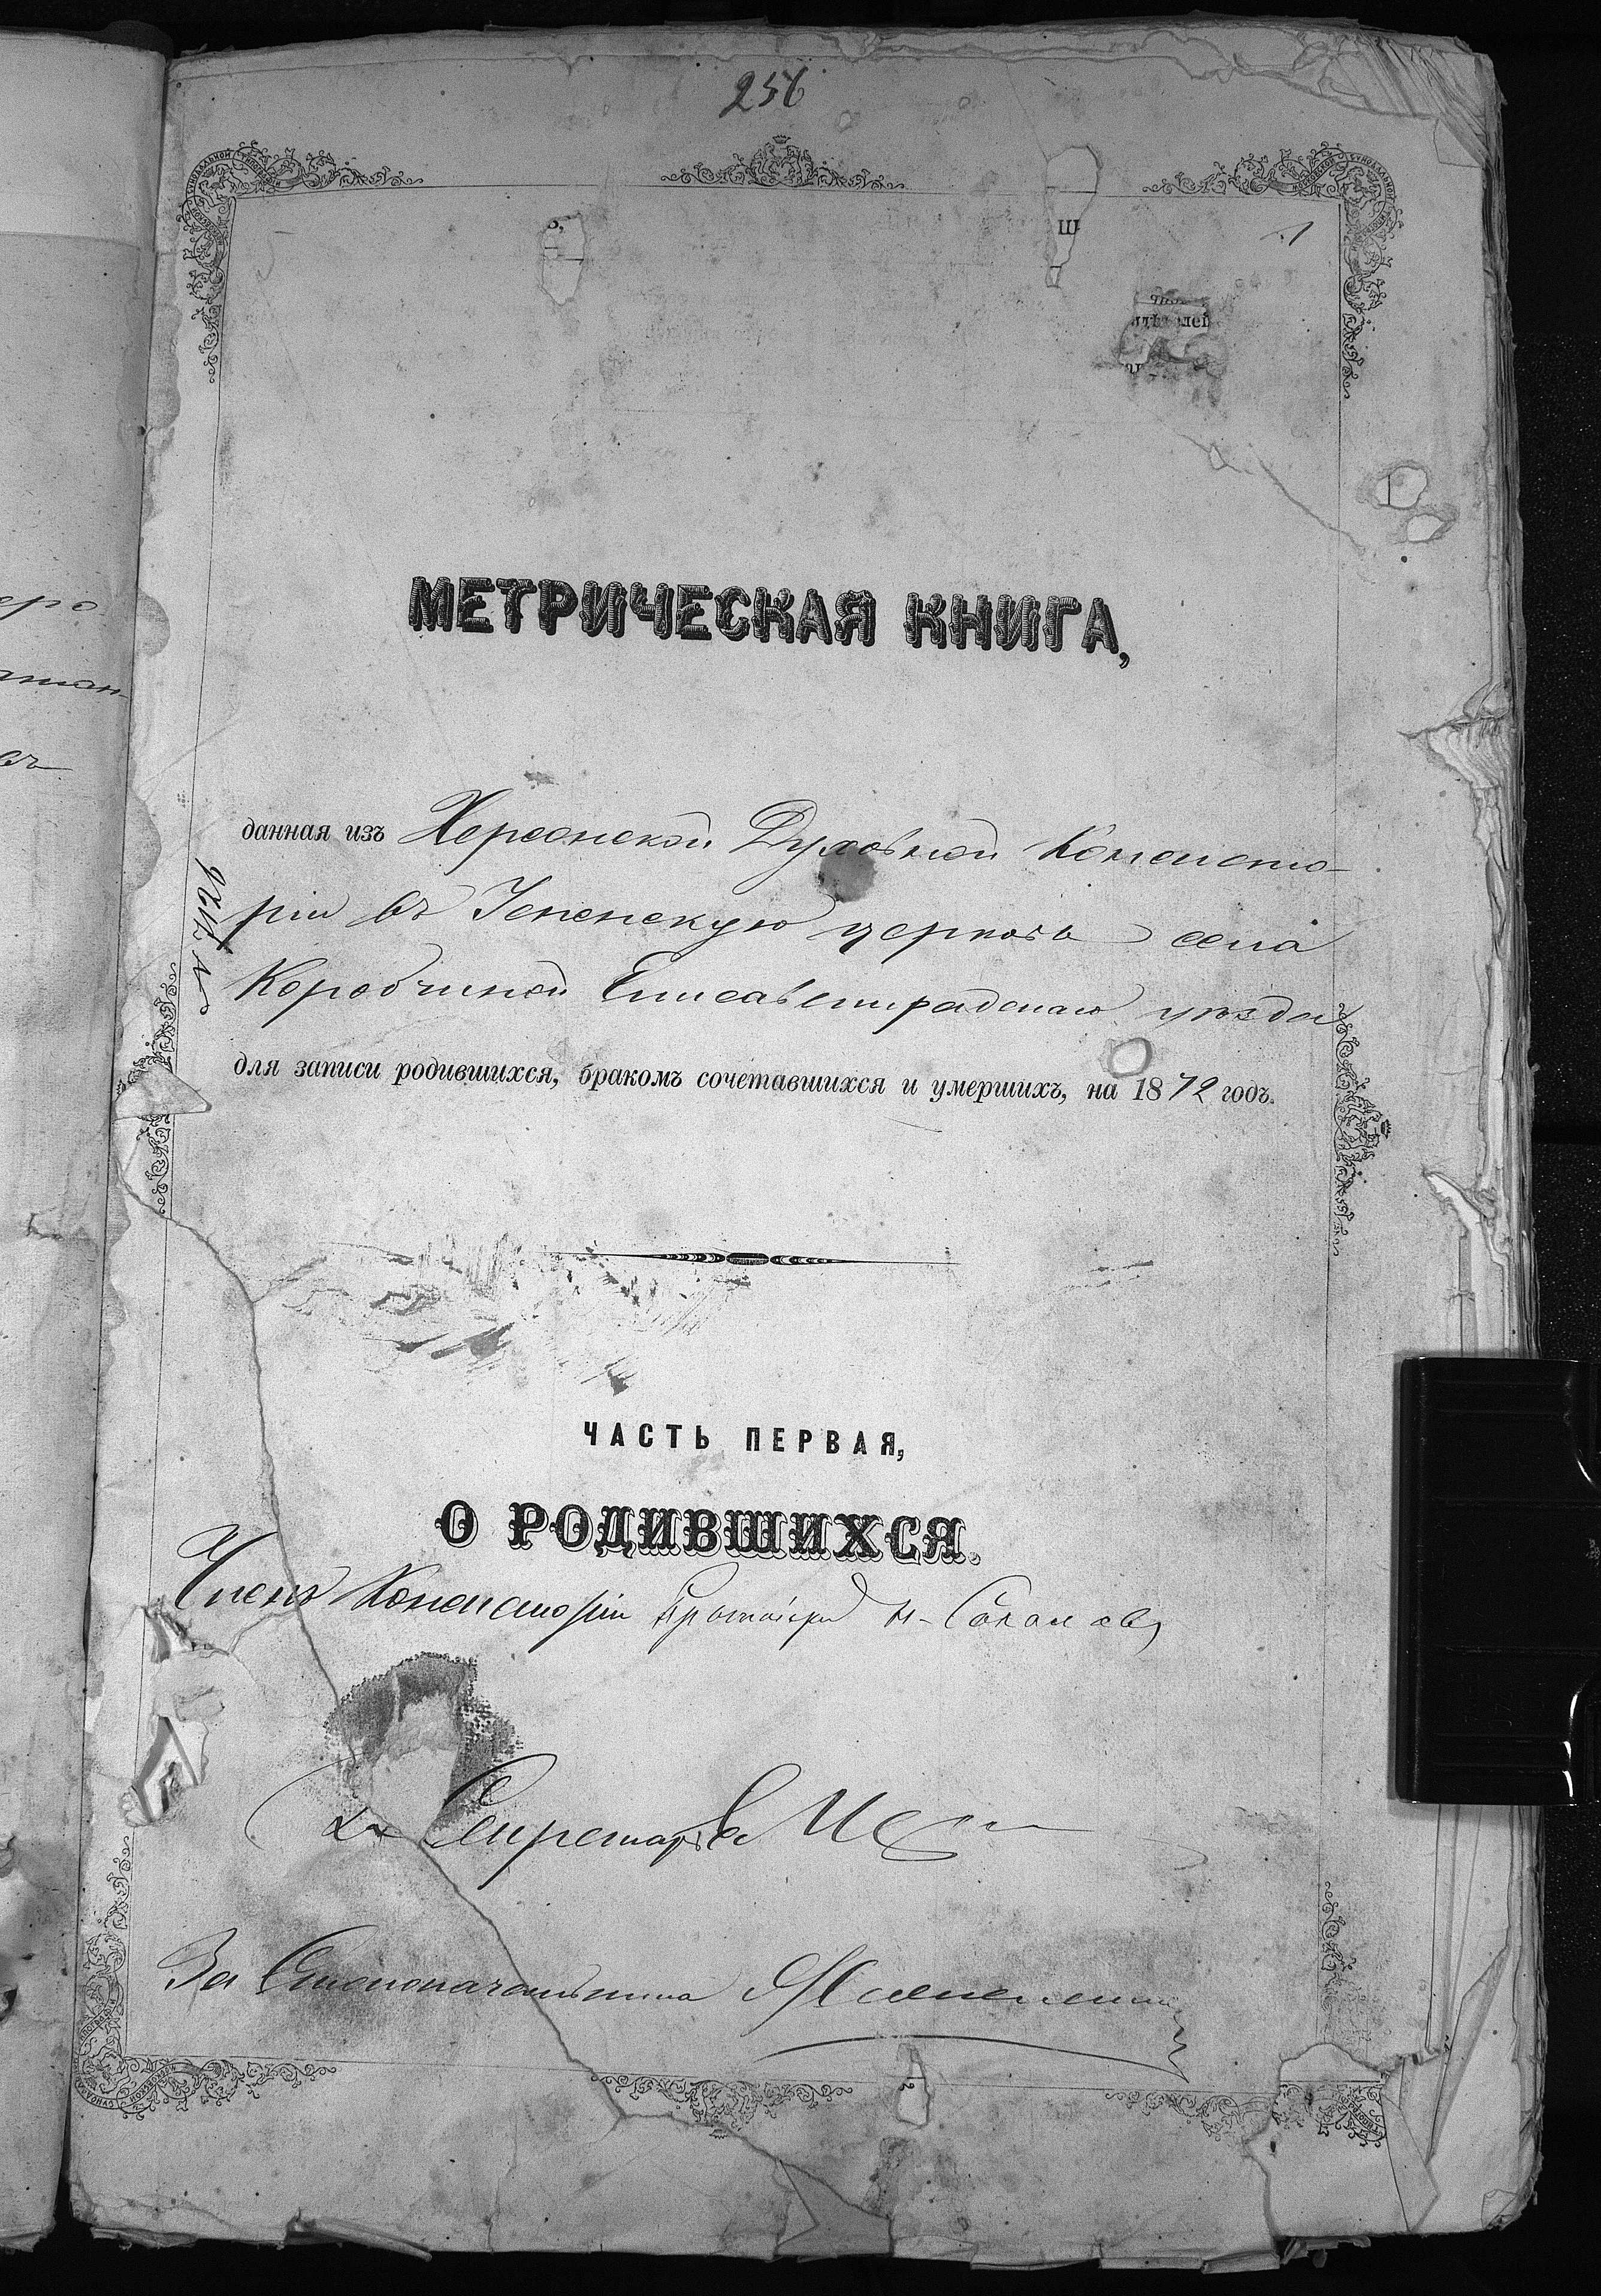 256
1
МЕТРИЧЕСКАЯ КНИГА,
данная изъ Херсонской Духовной Консисто-
ріи въ Успенскую церковь села
Коробчиной Елисаветградскаго уѣзда
для записи родившихся, бракомъ сочетавшихся и умершихъ, на 1872 годъ.
ЧАСТЬ ПЕРВАЯ,
О РОДИВШИХСЯ.
Членъ Консисторіи Протоіерей Н. Соколовъ
Секретарь
За Столоначальника